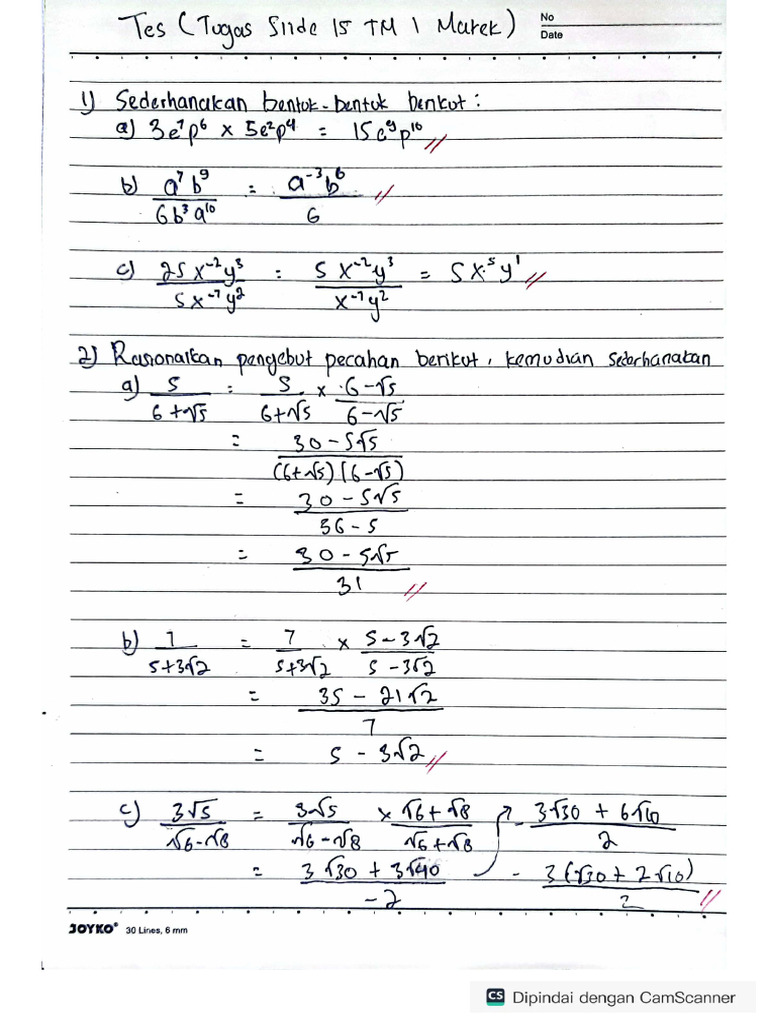 Tes (Tugas Slide 15 TM 1 Marek)
No
Date
1) Sederhanakan bentuk-bentuk berikut :
a) 3e⁷p⁶ x 5e²p⁴ = 15e⁹p¹⁰ //
b) a⁷b⁹ / 6b³a¹⁰ = a⁻³b⁶ / 6 //
c) 25x⁻²y³ / 5x⁻⁷y² = 5x⁻²y³ / x⁻⁷y² = 5x⁵y¹ //
2) Rasionalkan pengebut pecahan berikut, kemudian sederhanakan
a) 5 / 6+√5 = 5 / 6+√5 x 6-√5 / 6-√5
= 30-5√5 / (6+√5)(6-√5)
= 30-5√5 / 36-5
= 30-5√5 / 31 //
b) 7 / 5+3√2 = 7 / 5+3√2 x 5-3√2 / 5-3√2
= 35-21√2 / 7
= 5-3√2 //
c) 3√5 / √6-√8 = 3√5 / √6-√8 x √6+√8 / √6+√8
= 3√30+3√40 / -2
- 3√30+6√10 / 2
- 3(√30+2√10) / 2 //
JOYKO® 30 Lines, 6 mm
CS Dipindai dengan CamScanner